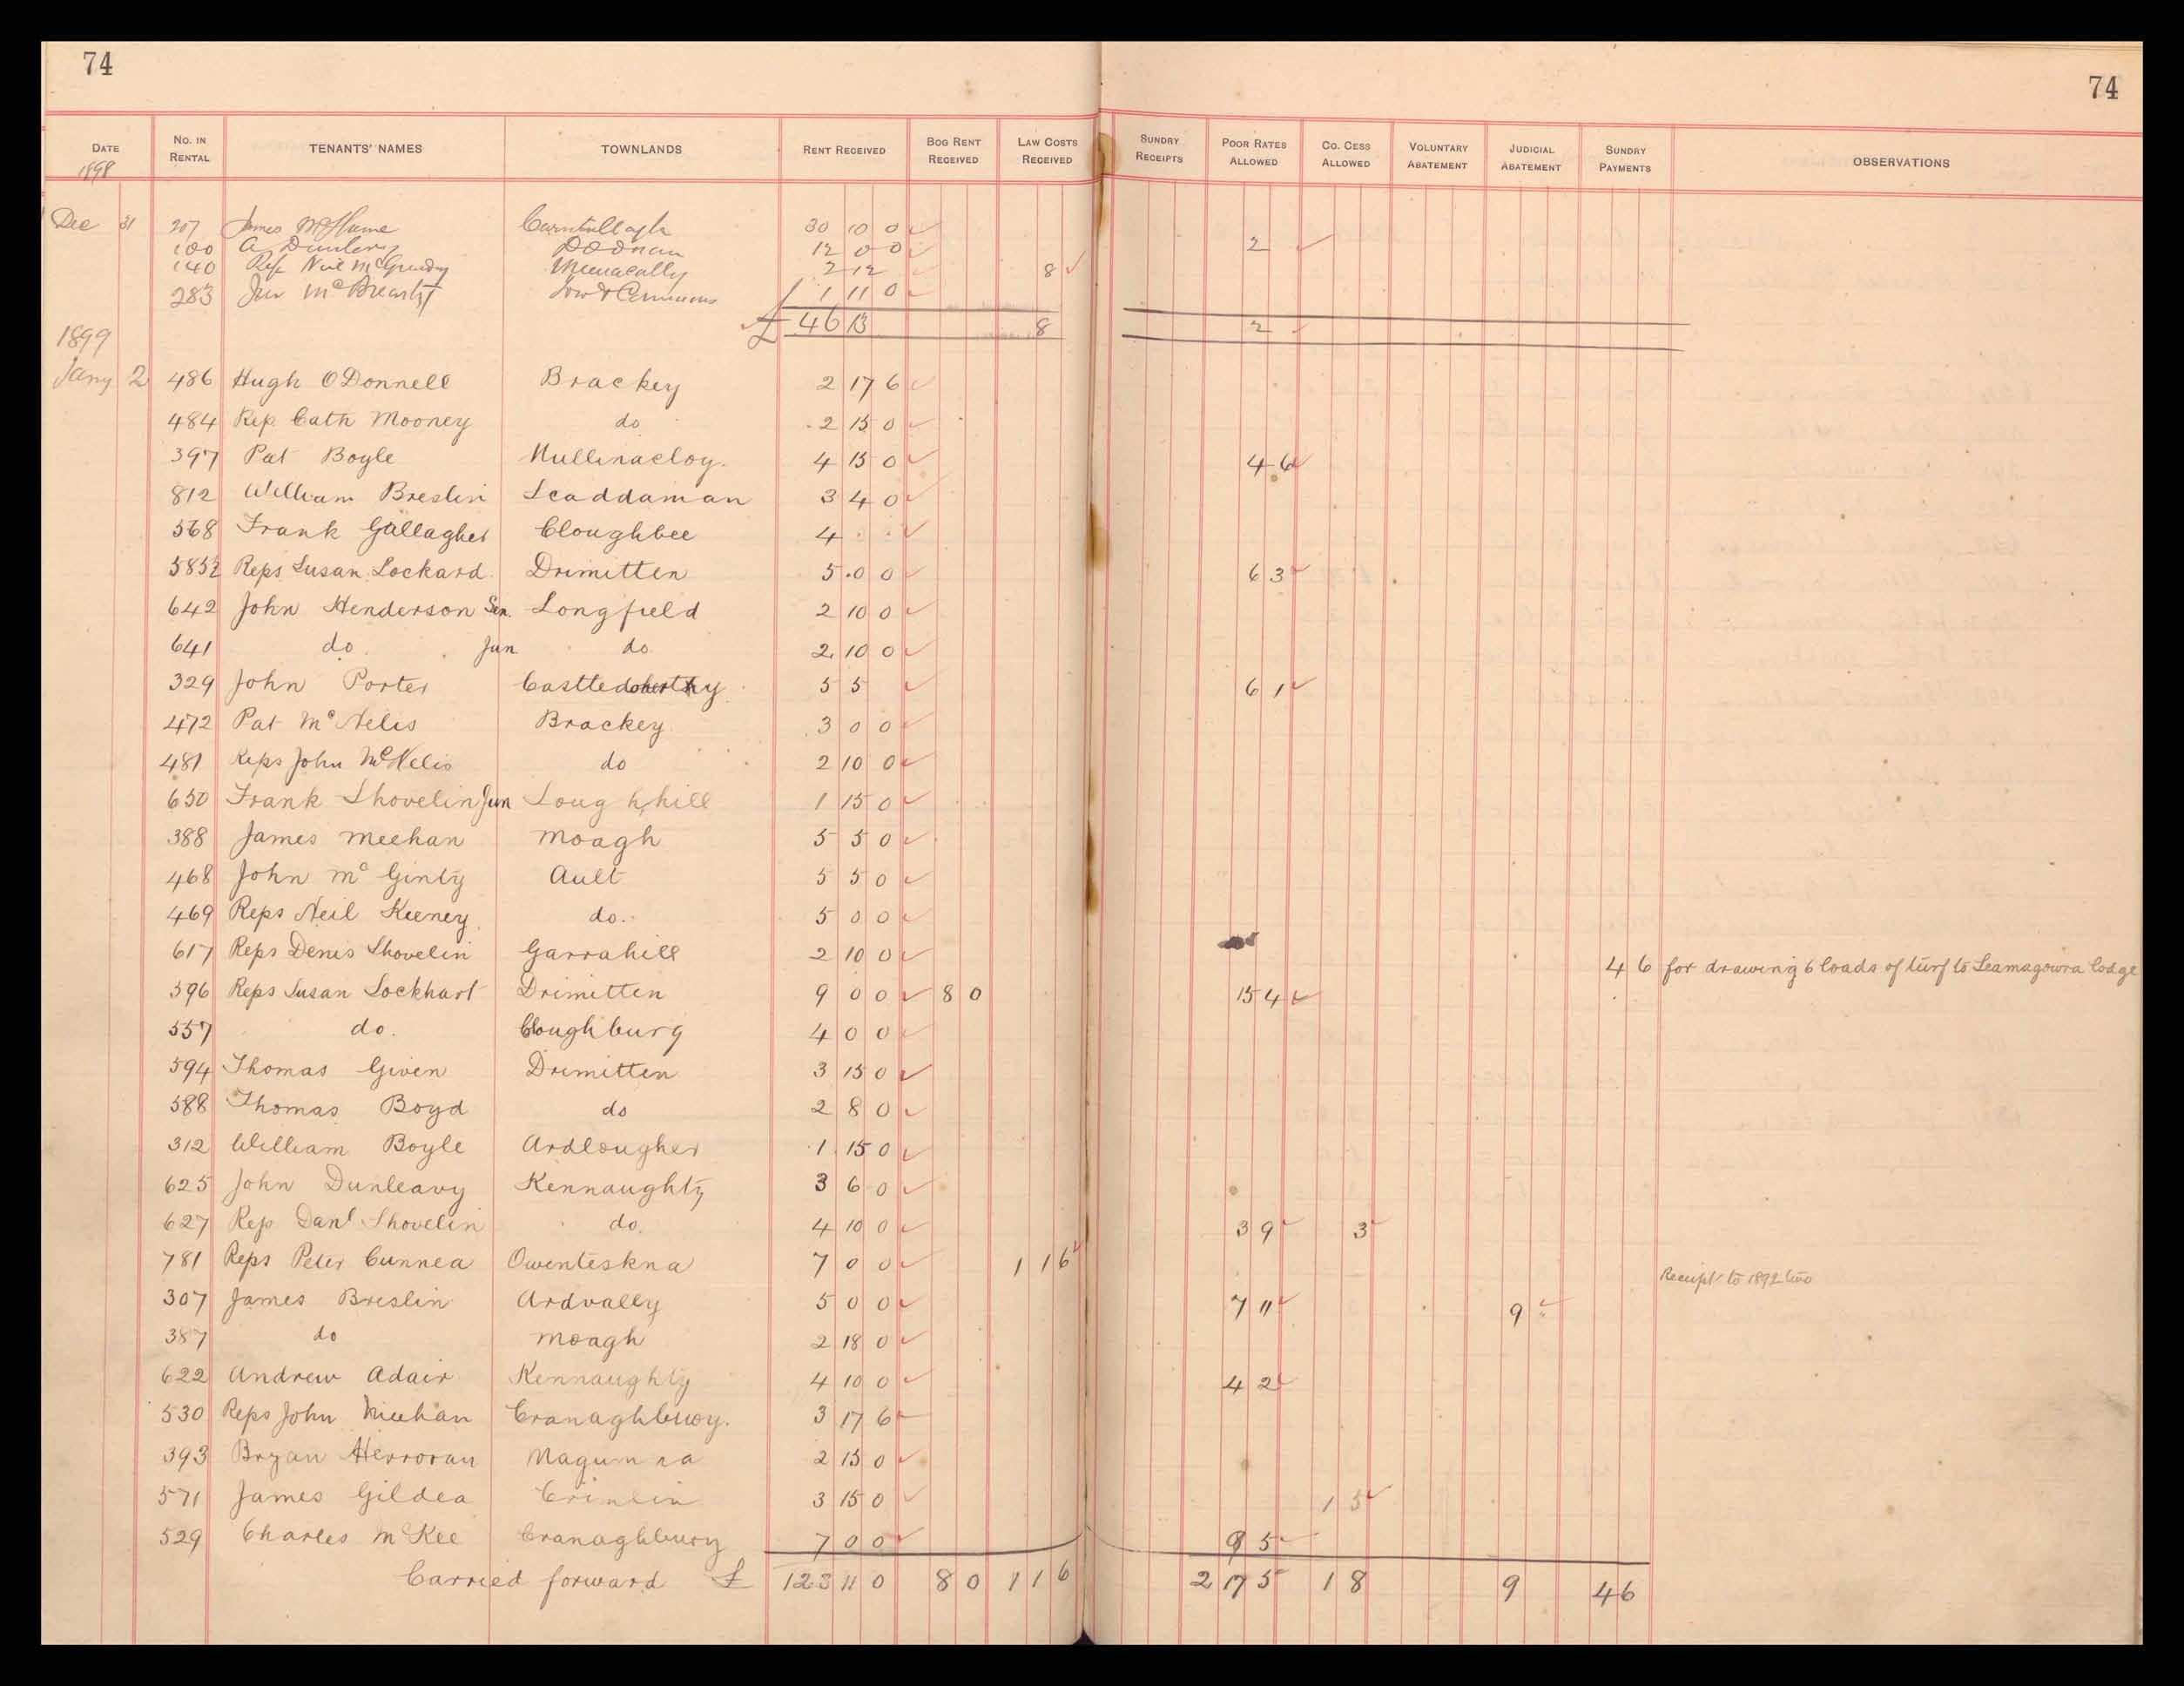 74
74
DATE 1898 No. IN RENTAL TENANTS' NAMES TOWNLANDS RENT RECEIVED BOG RENT RECEIVED LAW COSTS RECEIVED SUNDRY RECEIPTS POOR RATES ALLOWED CO. CESS ALLOWED VOLUNTARY ABATEMENT JUDICIAL ABATEMENT SUNDRY PAYMENTS OBSERVATIONS
Dec 31 207 James 30 10 0
100 A Dunlevy Doonan 12 0 0 2
140 Rep Neil McGready Meenacally 2 12 8
283 Jas 1 11 0
£ 46 13 8 2
1899
Jany 2 486 Hugh O'Donnell Brackey 2 17 6
484 Rep. Cath Mooney do 2 15 0
397 Pat Boyle Mullinacloy. 4 15 0 4 6
812 William Breslin Scaddaman 3 4 0
568 Frank Gallagher Cloughbee 4 . .
585½ Reps Susan Lockard Drimitten 5 . 0 0 6 3
642 John Henderson Sen. Longfield 2 10 0
641 do. Jun do 2 10 0
329 John Porter 5 5 6 1
472 Pat McNelis Brackey 3 0 0
481 Reps John McNelis do 2 10 0
650 Frank Shovelin Jun Lough hill 1 15 0
388 James Meehan Moagh 5 5 0
468 John Mc Ginty Ault 5 5 0
469 Reps Neil Keeney do. 5 0 0
617 Reps Denis Shovelin Garrahill 2 10 0 4 6 for drawing 6 loads of turf to lodge
596 Reps Susan Lockhart Drimitten 9 0 0 8 0 15 4
557 do. Cloughbury 4 0 0
594 Thomas Given Drimitten 3 15 0
588 Thomas Boyd do 2 8 0
312 William Boyle Ardlougher 1 15 0
625 John Dunleavy Kennaughty 3 6 0
627 Rep Danl Shovelin do. 4 10 0 3 9 3
781 Reps Peter Cunnea Owenteskna 7 0 0 1 1 6
Receipt to 1892
307 James Breslin Ardvally 5 0 0 7 11 9
387 do Moagh 2 18 0
622 Andrew Adair Kennaughty 4 10 0 4 2
530 Reps John Meehan Cranaghbuoy. 3 17 6
393 Bryan Herroran 2 15 0
571 James Gildea Crimlin 3 15 0 1 5
529 Charles McKee Cranaghbury 7 0 0 9 5
Carried forward £ 123 11 0 8 0 1 1 6 2 17 5 1 8 9 4 6